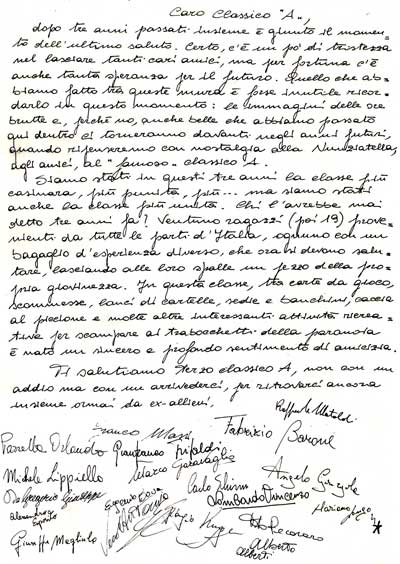 Caro Classico "A",
dopo tre anni passati insieme è giunto il momen-
to dell'ultimo saluto. Certo, c'è un po' di tristezza
nel lasciare tanti cari amici, ma per fortuna c'è
anche tanta speranza per il futuro. Quello che ab-
biamo fatto tra queste mura è forse inutile ricor-
darlo in questo momento: le immagini delle ore
brutte e, perché no, anche belle che abbiamo passato
qui dentro ci torneranno davanti negli anni futuri,
quando ripenseremo con nostalgia alla Nunziatella,
agli amici, al "famoso" classico A.
Siamo stati in questi tre anni la classe più
casinara, più punita, più... ma siamo stati
anche la classe più unita. Chi l'avrebbe mai
detto tre anni fa? Ventuno ragazzi (poi 19) prove-
nienti da tutte le parti d'Italia, ognuno con un
bagaglio d'esperienza diverso, che ora si devono salu-
tare, lasciando alle loro spalle un pezzo della pro-
pria giovinezza. In questa classe, tra carte da gioco,
scommesse, lanci di cartelle, sedie e banchini, caccia
al piccione e molte altre interessanti attività ricrea-
tive per scampare ai trabocchetti della paranoia
è nato un sincero e profondo sentimento di amicizia.
Ti salutiamo terzo classico A, non con un
addio ma con un arrivederci, per ritrovarci ancora
insieme ormai da ex-allievi.
Franco Massi
Fabrizio Barone
Parrella Orlando
Gianfranco Rinaldi
Michele Lippiello
Marco Garavaglia
Angelo
Carlo
Lombardo Vincenzo
Alessandro Esposito
Giuseppe Magliulo
Pecoraro
Alberto Alberti